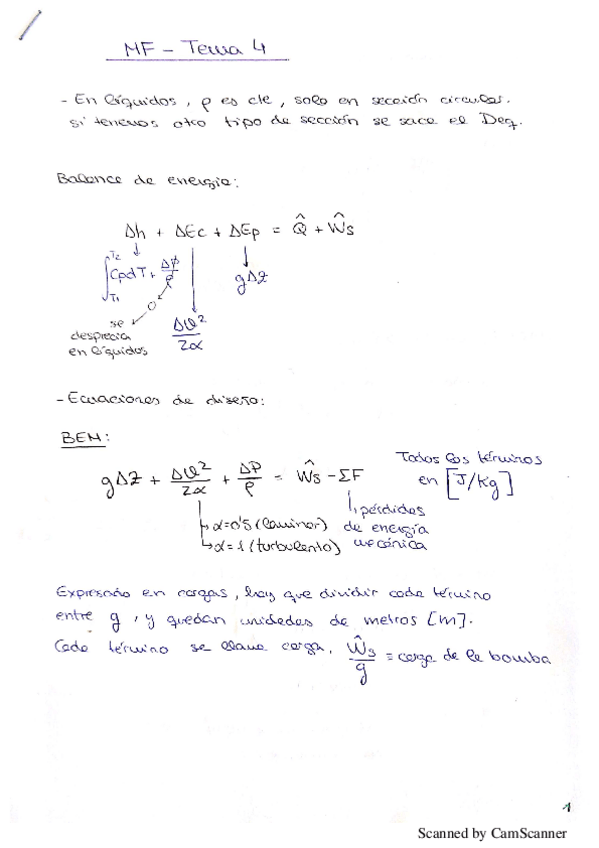 MF - Tema 4
- En líquidos, ρ es cte, solo en sección circular.
si tenemos otro tipo de sección se saca el Deq.
Balance de energía:
Δh + ΔEc + ΔEp = Q̂ + Ŵs
∫ T2 T1 CpdT + ΔP/ρ
0
gΔz
se desprecia en líquidos
Δv²/2α
- Ecuaciones de diseño:
BEM:
gΔz + Δv²/2α + ΔP/ρ = Ŵs - ΣF
Todos los términos
en [J/kg]
α=0'5 (laminar)
α=1 (turbulento)
pérdidas
de energía
mecánica
Expresando en cargas, hay que dividir cada término
entre g, y quedan unidades de metros [m].
Cada término se llama carga, Ŵs/g = carga de la bomba
1
Scanned by CamScanner